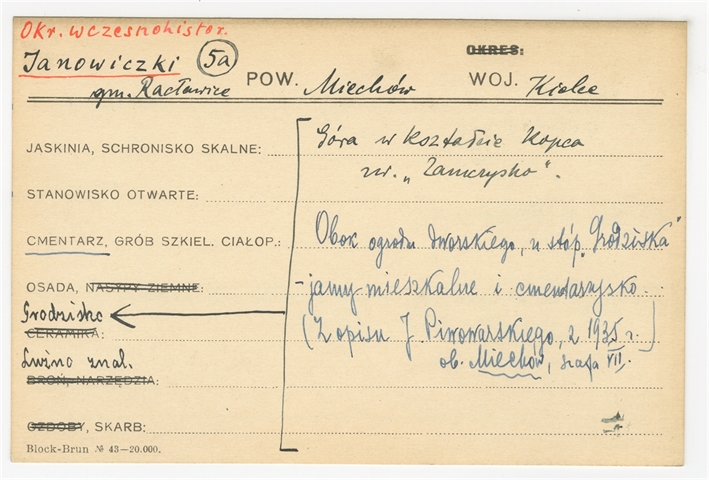 Okr. wczesnohistor.
Janowiczki 5a
gm. Racławice POW. Miechów WOJ. Kielce
OKRES:
JASKINIA, SCHRONISKO SKALNE: Góra w kształcie Kopca
zw. "Zamczysko".
STANOWISKO OTWARTE:
CMENTARZ, GRÓB SZKIEL. CIAŁOP.: Obok ogrodu dworskiego, u stóp "Grodziska"
OSADA, NASYPY ZIEMNE: - jamy mieszkalne i cmentarzysko.
Grodzisko
CERAMIKA: (Z opisu J. Piwowarskiego, z 1935 r.)
ob. Miechów, szafa VII.
Luźno znal.
BROŃ, NARZĘDZIA:
OZDOBY, SKARB:
Block-Brun № 43—20.000.